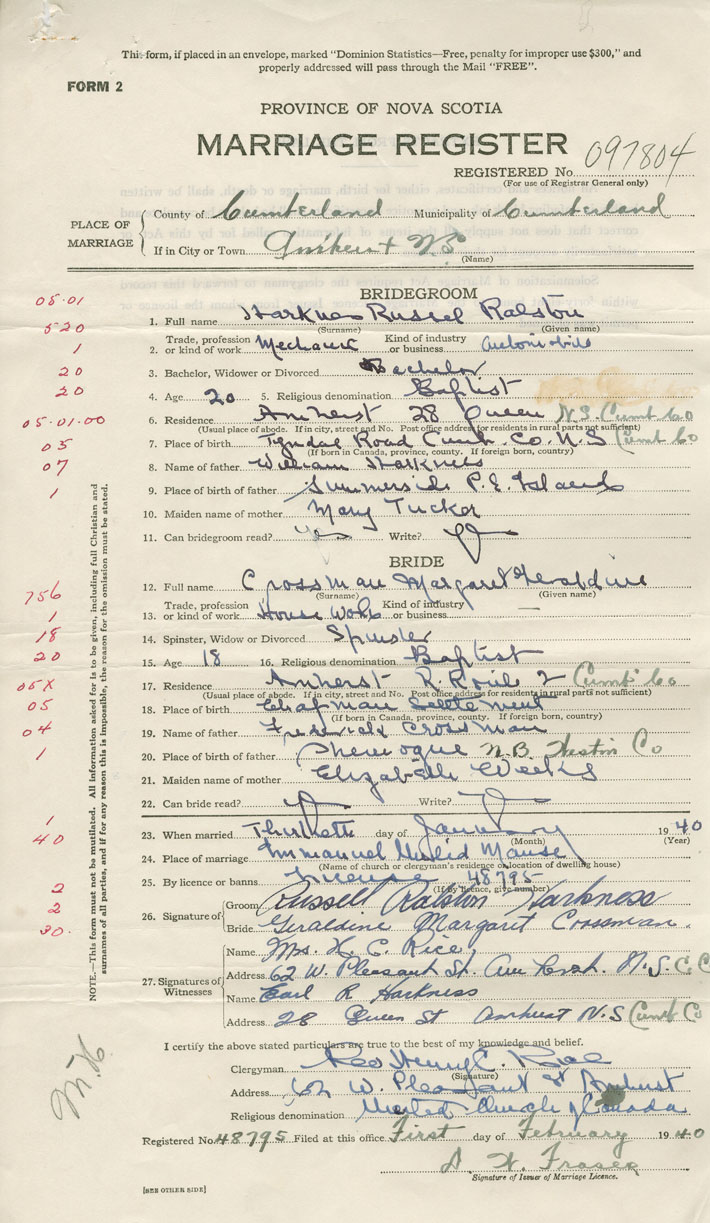 This form, if placed in an envelope, marked "Dominion Statistics—Free, penalty for improper use $300," and
properly addressed will pass through the Mail "FREE".
FORM 2
PROVINCE OF NOVA SCOTIA
MARRIAGE REGISTER
REGISTERED No. 097804
(For use of Registrar General only)
PLACE OF MARRIAGE
County of Cumberland Municipality of Cumberland
If in City or Town Amherst N.S.
(Name)
BRIDEGROOM
05.01
1. Full name Harkness Russel Ralston
(Surname) (Given name)
520
Trade, profession Kind of industry
2. or kind of work Mechanic or business Automobile
1
3. Bachelor, Widower or Divorced Bachelor
20
4. Age 20 5. Religious denomination Baptist
20
6. Residence Amherst 28 Queen N.S. Cumb Co
(Usual place of abode. If in city, street and No. Post office address for residents in rural parts not sufficient)
05.01.00
7. Place of birth Tyndal Road Cumb. Co. N.S Cumb Co
(If born in Canada, province, county. If foreign born, country)
05
8. Name of father William Harkness
07
9. Place of birth of father Summerside P.E. Island
1
10. Maiden name of mother Mary Tucker
11. Can bridegroom read? Yes Write?
BRIDE
12. Full name Crossman Margaret Geraldine
(Surname) (Given name)
756
Trade, profession Kind of industry
13. or kind of work House Work or business —
1
14. Spinster, Widow or Divorced Spinster
18
15. Age 18 16. Religious denomination Baptist
20
17. Residence Amherst R. Route 2 Cumb Co
(Usual place of abode. If in city, street and No. Post office address for residents in rural parts not sufficient)
05X
18. Place of birth Chapman Settlement
(If born in Canada, province, county. If foreign born, country)
05
19. Name of father Frederick Crossman
04
20. Place of birth of father Shemogue N.B. Co
1
21. Maiden name of mother Elizabeth Weeks
22. Can bride read? Write?
1
23. When married day of January 1940
(Month) (Year)
40
24. Place of marriage Immanuel United Manse
(Name of church or clergyman's residence or location of dwelling house)
25. By licence or banns License 48795
(If by licence, give number)
2
2
30.
26. Signature of
Groom Russell Ralston Harkness
Bride Geraldine Margaret Crossman.
27. Signatures of Witnesses
Name Mrs. H. C. Rice,
Address 62 W. Pleasant St. Amherst. N.S. C C
Name Earl R Harkness
Address 28 Queen St Amherst N.S Cumb Co
NOTE.—This form must not be mutilated. All information asked for is to be given, including full Christian and
surnames of all parties, and if for any reason this is impossible, the reason for the omission must be stated.
I certify the above stated particulars are true to the best of my knowledge and belief.
Clergyman Rev Henry C. Rice
(Signature)
Address 62 W. Pleasant St Amherst
Religious denomination United Church of Canada
Registered No. 48795 Filed at this office First day of February 1940
Signature of Issuer of Marriage Licence.
[SEE OTHER SIDE]